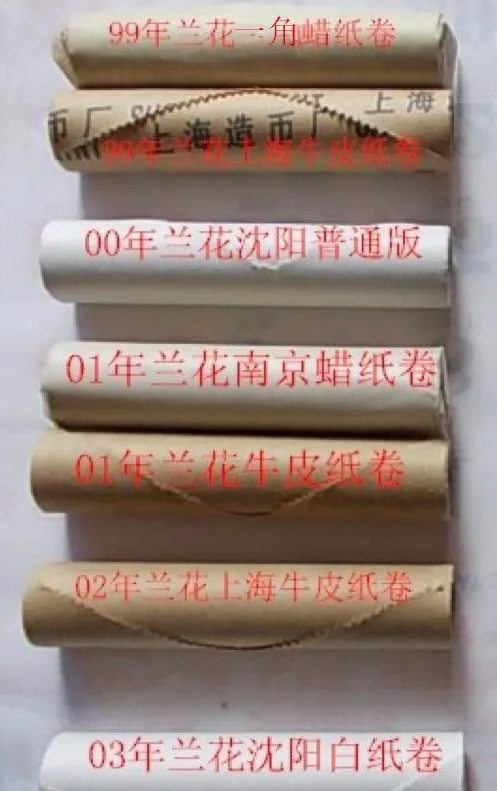 99年兰花一角蜡纸卷
上海
币厂
上海造币厂
99年兰花上海牛皮纸卷
00年兰花沈阳普通版
01年兰花南京蜡纸卷
01年兰花牛皮纸卷
02年兰花上海牛皮纸卷
03年兰花沈阳白纸卷